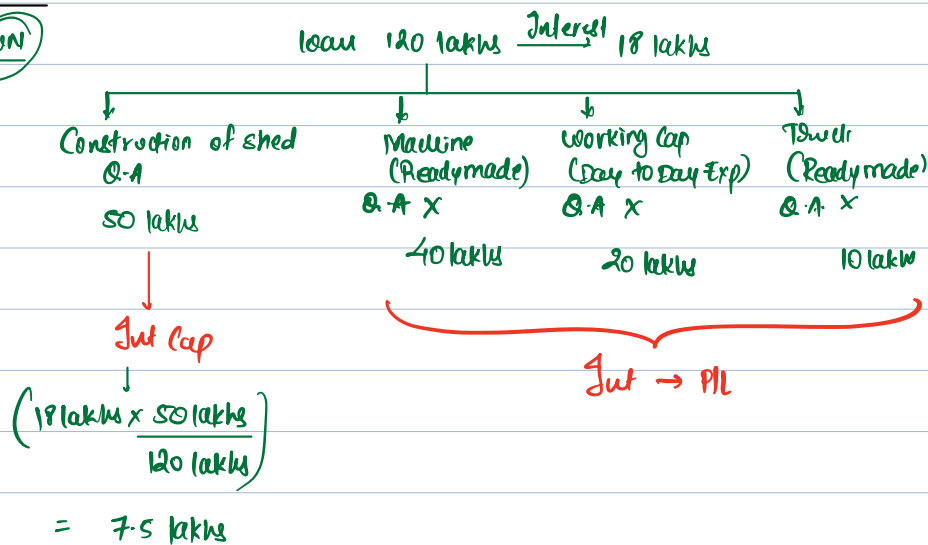 ON
loan 120 lakhs Interest 18 lakhs
Construction of shed
Q.A
50 lakhs
Machine
(Readymade)
Q.A X
40 lakhs
Working Cap
(Day to Day Exp)
Q.A X
20 lakhs
(Readymade)
Q.A. X
10 lakhs
Int Cap
(18 lakhs x 50 lakhs
120 lakhs)
= 7.5 lakhs
Int → P/L